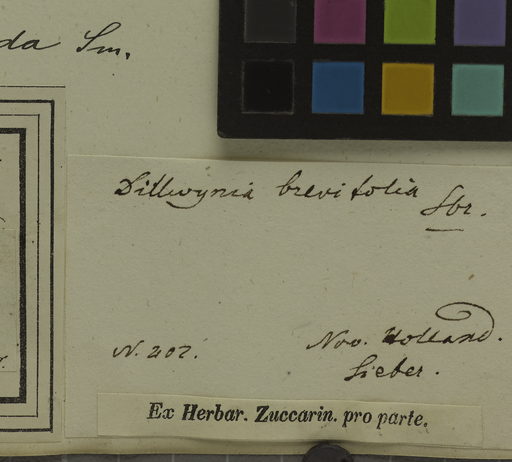 da Sm.
Dillwynia brevifolia Sbr.
Nov. Holland.
N. 202.
Sieber.
Ex Herbar. Zuccarin. pro parte.